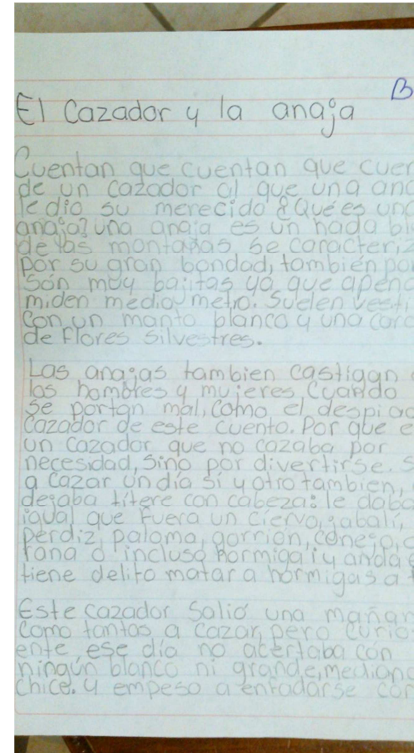 B
El Cazador y la anaja
Cuentan que cuentan que cuen
de un cazador al que una ana
le dio su merecido ¿Que es una
anaja? una anaja es un hada bl
de las montañas, se caracteriz
por su gran bondad, también po
son muy bajitas ya que apena
miden medio metro. Suelen vesti
con un manto blanco y una coro
de flores silvestres.
Las anajas tambien castigan
los hombres y mujeres cuando
se portan mal, como el despiad
cazador de este cuento. Por que e
un cazador que no cazaba por
necesidad, sino por divertirse. S
a cazar un día si y otro tambien,
dejaba titere con cabeza: le daba
igual que fuera un ciervo, jabali,
perdiz, paloma, gorrion, conejo,
rana o incluso hormiga! y anda
tiene delito matar a hormigas a
Este cazador salió una mañan
como tantas a cazar, pero curio
ente, ese dia no acertaba con
ningún blanco ni grande, mediano
chico. y empeso a enfadarse con